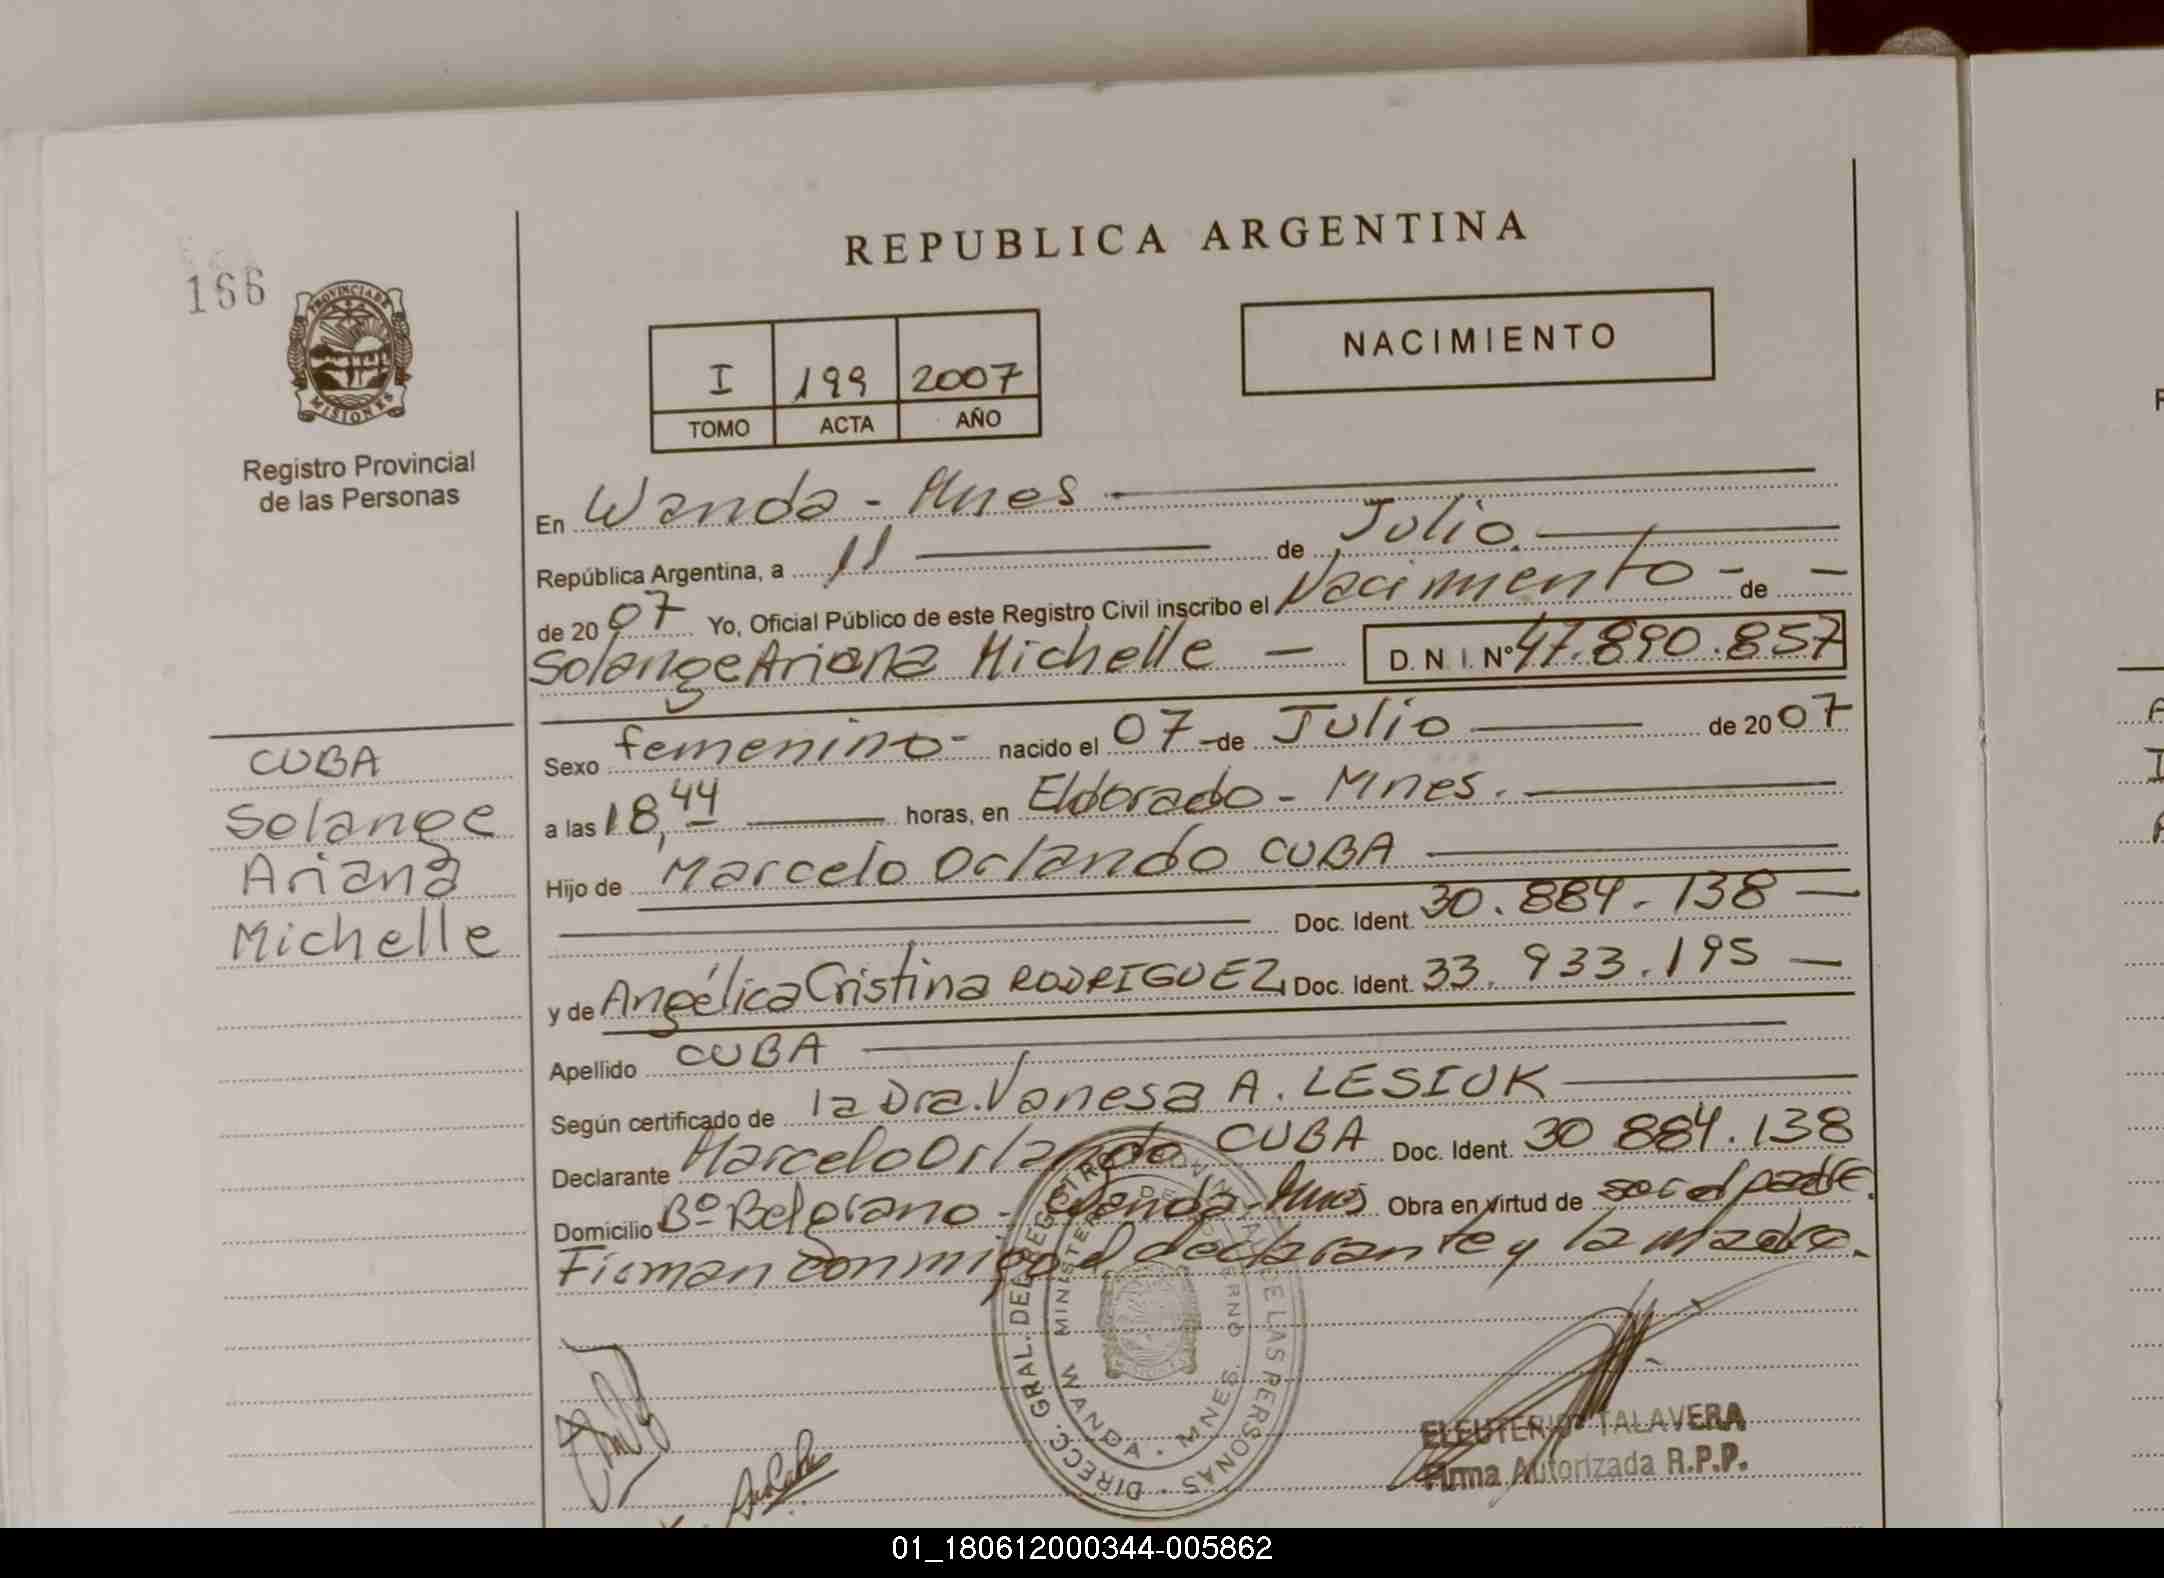 REPUBLICA ARGENTINA
166
PROVINCIA DE
MISIONES
Registro Provincial
de las Personas
I 199 2007
TOMO ACTA AÑO
NACIMIENTO
En Wanda - Mnes
República Argentina, a 11 de Julio.
de 2007 Yo, Oficial Público de este Registro Civil inscribo el Nacimiento - de -
Solange Ariana Michelle - D.N.I. Nº 47.890.857
CUBA
Solange
Ariana
Michelle
Sexo femenino - nacido el 07 - de Julio de 2007
a las 18,44 horas, en Eldorado - Mnes.
Hijo de Marcelo Orlando CUBA
Doc. Ident. 30.884.138 -
y de Angélica Cristina RODRIGUEZ, Doc. Ident. 33.933.195 -
Apellido CUBA
Según certificado de la Dra. Vanesa A. LESIUK
Declarante Marcelo Orlando CUBA Doc. Ident. 30 884.138
Domicilio Bº Belgrano - Wanda - Mnes Obra en virtud de ser el padre.
Firman conmigo el declarante y la madre.
DIRECC. GRAL. DEL REGISTRO PROVINCIAL DE LAS PERSONAS
MINISTERIO DE GOBIERNO
WANDA - MNES.
ELEUTERIO TALAVERA
Firma Autorizada R.P.P.
01_180612000344-005862